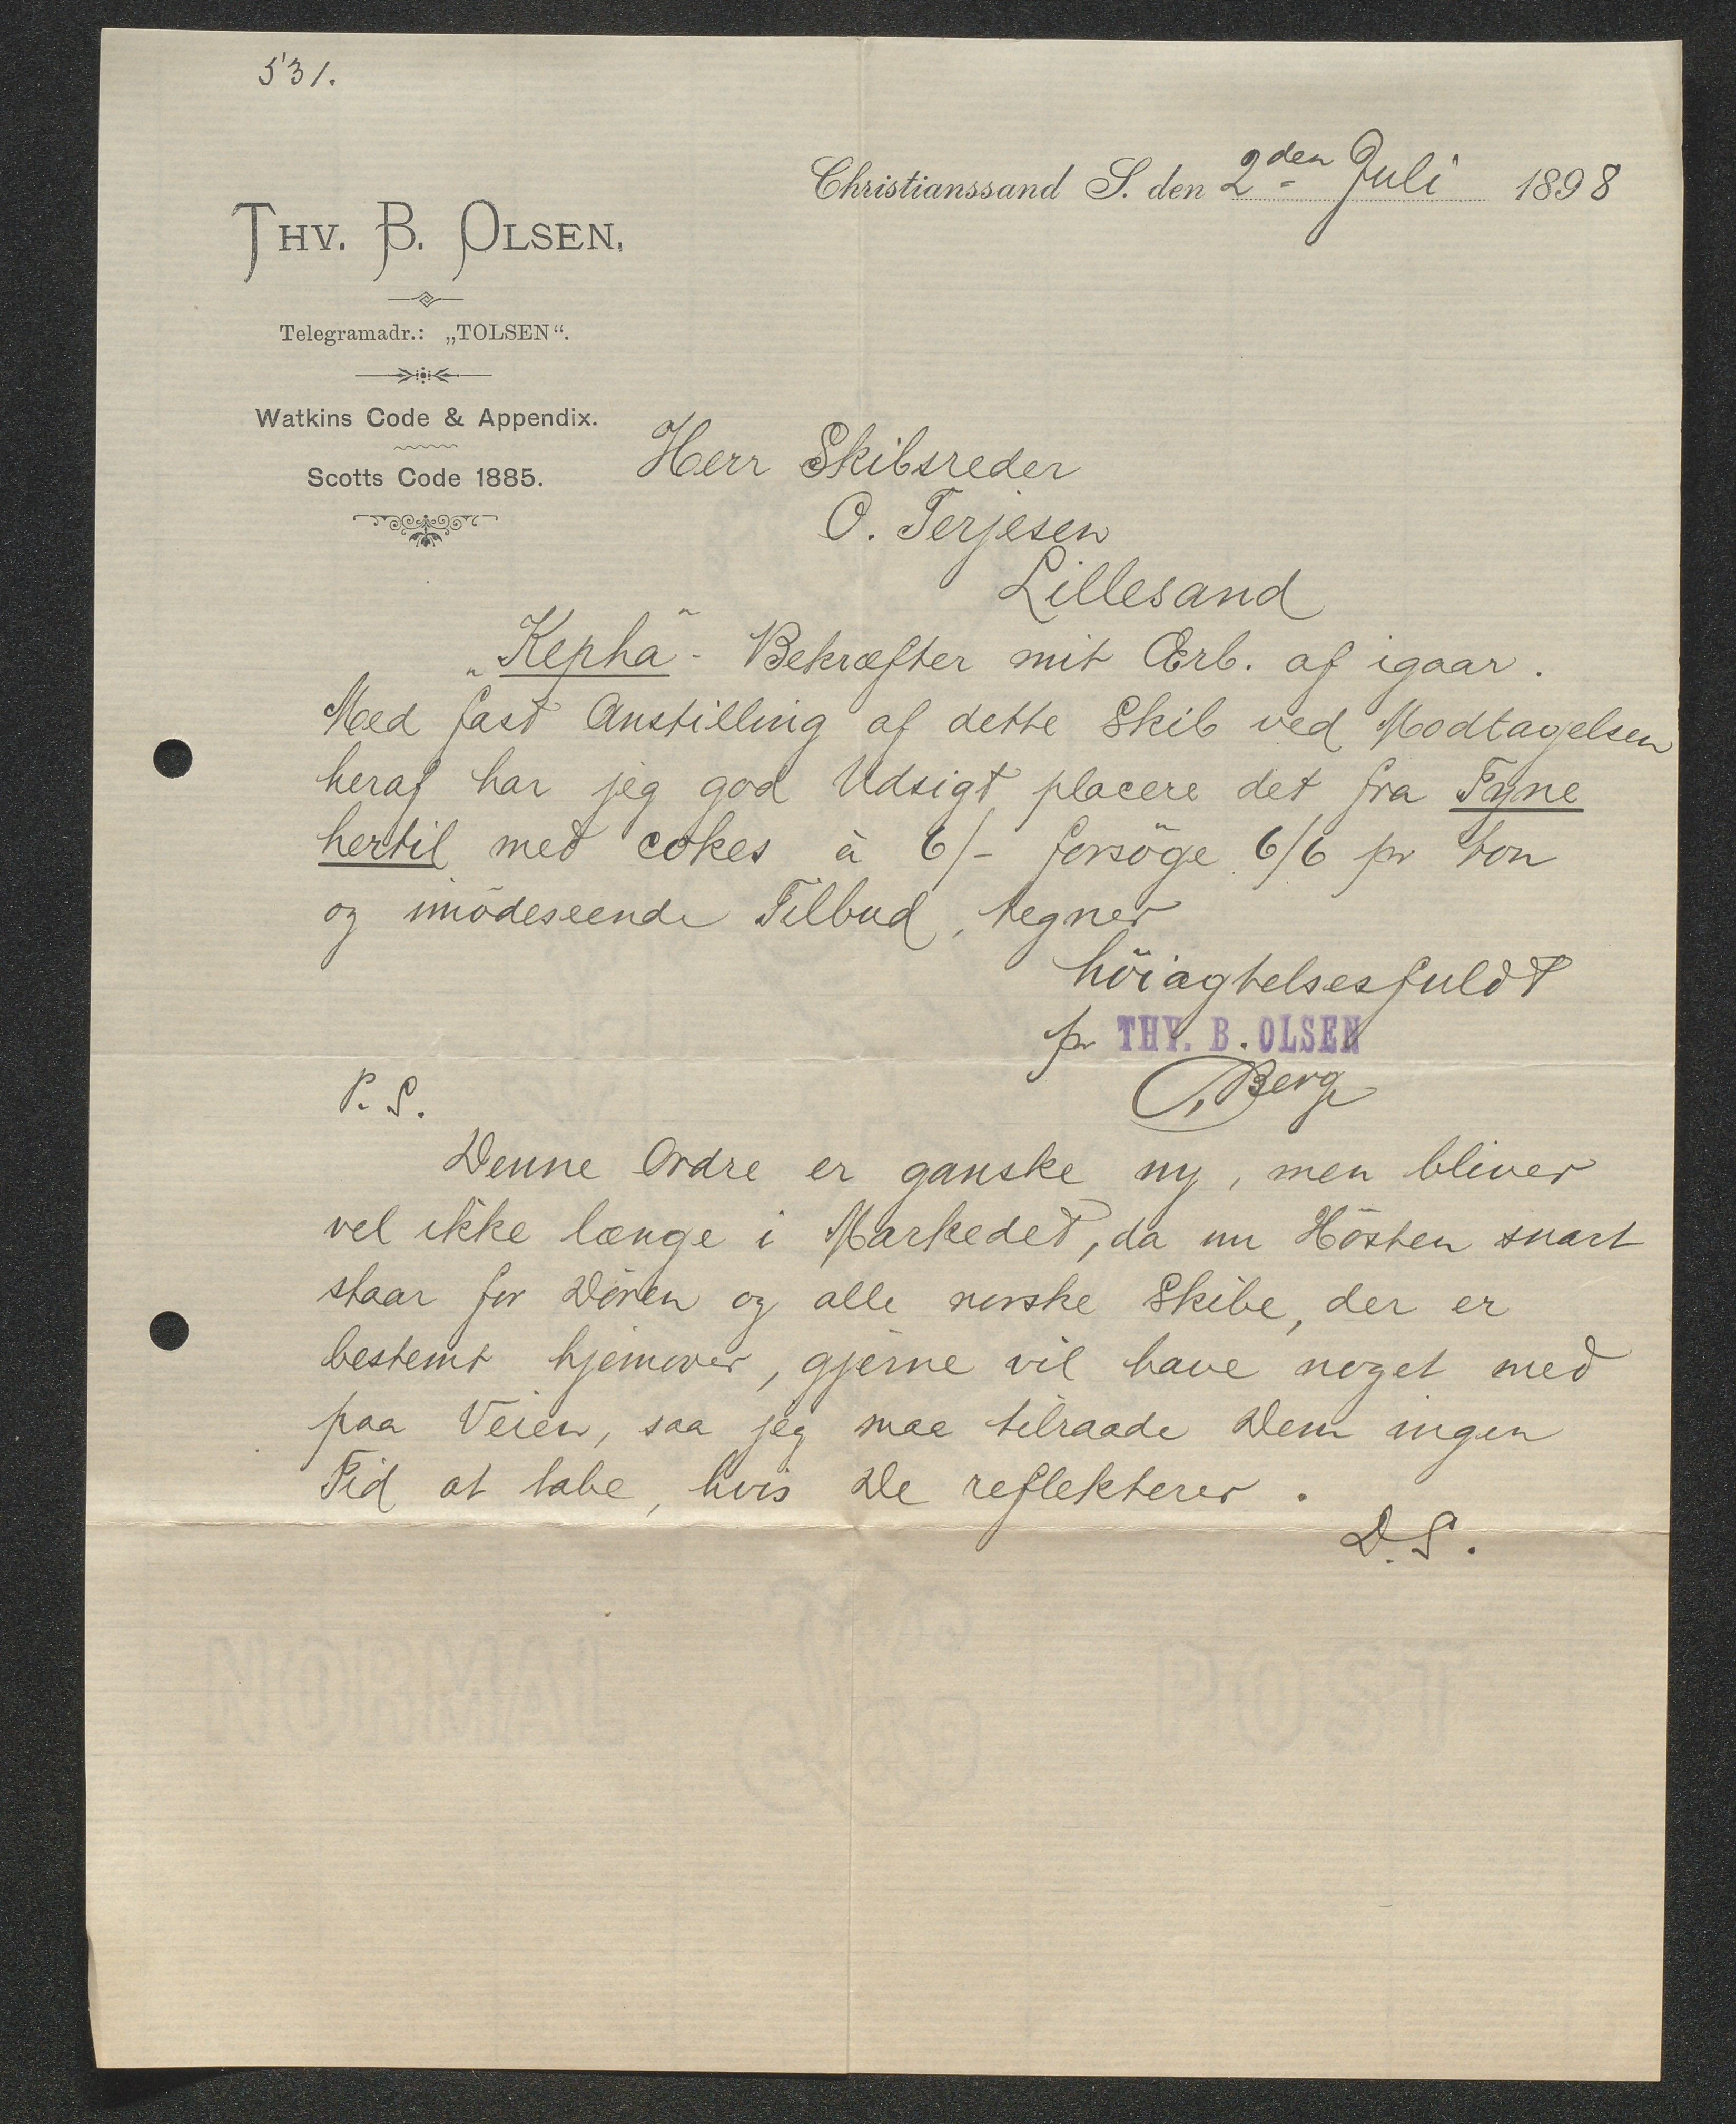 531.
Christianssand S. den 2den Juli 1898
THV. B. OLSEN.
Telegramadr.: „TOLSEN“.
Watkins Code & Appendix.
Scotts Code 1885.
Herr Skibsreder
O. Terjesen
Lillesand
„Kepha“- Bekræfter mit Ærb. af igaar.
Med fast Anstilling af dette Skib ved Modtagelsen
heraf har jeg god Udsigt placere det fra Tyne
hertil med cokes à 6/- forsöge 6/6 pr ton
og imödeseende Tilbud, tegner
höiagtelsesfuldt
pr THV. B. OLSEN
Berg
P. S.
Denne Ordre er ganske ny, men bliver
vel ikke længe i Markedet, da nu Hösten snart
staar for Dören og alle norske Skibe, der er
bestemt hjemover, gjerne vil have noget med
paa Veien, saa jeg maa tilraade Dem ingen
Tid at tabe, hvis De reflekterer.
D.S.